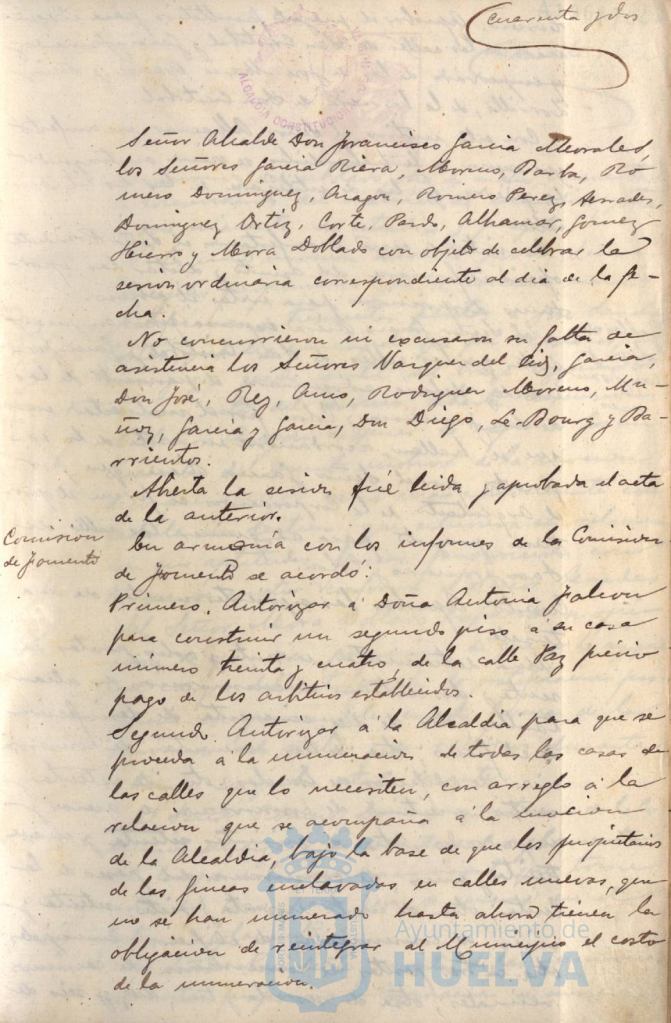 Cuarenta y dos
ALCALDIA CONSTITUCIONAL
Señor Alcalde Don Francisco Garcia Morales,
los Señores Garcia Riera, Moreno, Barba, Ro-
mero Dominguez, Aragon, Romero Perez, Terrades,
Dominguez Ortiz, Corte, Pardo, Alhamar, Gomez
Hierro y Mora Doblado con objeto de celebrar la
sesion ordinaria correspondiente al dia de la fe-
cha.
No concurrieron ni excusaron su falta de
asistencia los Señores Vazquez del Cid, Garcia,
Don José, Rey, Amo, Rodriguez Moreno, Mu-
ñoz, Garcia y Garcia, Don Diego, Le-Bourg y Ba-
rrientos.
Abierta la sesion fué leida y aprobada el acta
de la anterior.
Comision
de Fomento
En armonía con los informes de la Comision
de Fomento se acordó:
Primero. Autorizar á Doña Antonia Falcon
para construir un segundo piso á su casa
número treinta y cuatro, de la calle Paz prévio
pago de los arbitrios establecidos.
Segundo. Autorizar á la Alcaldia para que se
proceda á la numeracion de todas las casas de
las calles que lo necesiten, con arreglo á la
relacion que se acompaña á la mocion
de la Alcaldia, bajo la base de que los propietarios
de las fincas enclavadas en calles nuevas, que
no se han numerado hasta ahora tienen la
obligacion de reintegrar al Municipio el costo
de la numeracion.
Ayuntamiento de
HUELVA